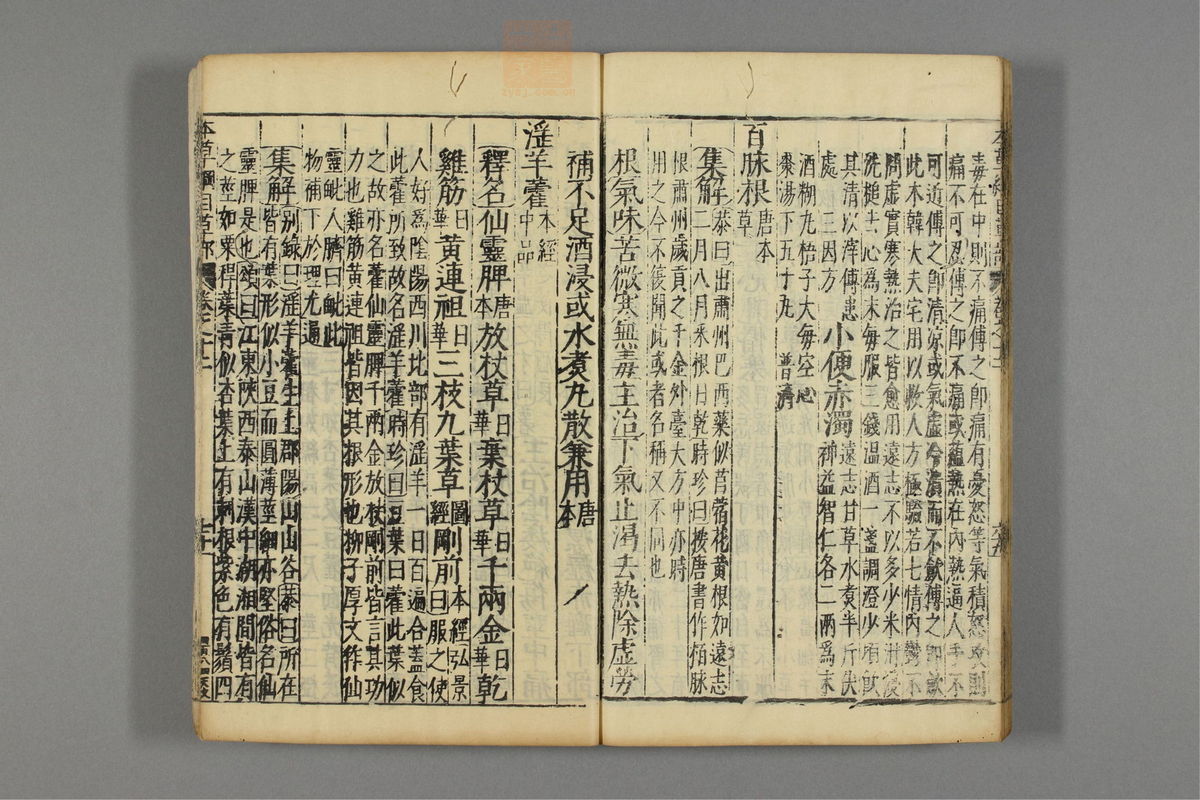 毒在中則不痛傅之即痛有憂怒等氣積怒攻則
痛不可忍傅之即不痛或蘊熱在內熱逼人手不
可近傅之即清涼或氣虛冷潰而不斂傅之即斂
此本韓大夫宅用以救人方極驗若七情內鬱不
問虛實寒熱治之皆愈用遠志不以多少米泔浸
洗槌去心為末每服三錢溫酒一盞調澄少頃飲
其清以滓傅患
處三因方
小便赤濁
遠志甘草水煮半斤伏
神益智仁各二兩為末
酒糊丸梧子大每空心
棗湯下五十丸 普濟
百脉根
唐本
草
集解
恭曰出肅州巴西葉似苜蓿花黃根如遠志
二月八月采根日乾時珍曰按唐書作栢脉
根肅州歲貢之千金外臺大方中亦時
用之今不復聞此或者名稱又不同也
根氣味苦微寒無毒主治下氣止渴去熱除虛勞
補不足酒浸或水煮丸散兼用唐本
淫羊藿
本經
中品
釋名仙靈脾唐本放杖草日華棄杖草日華千兩金日華乾
雞筋日華黃連祖日華三枝九葉草圖經剛前本經弘景
曰服之使
人好為陰陽西川北部有淫羊一日百遍合蓋食
此藿所致故名淫羊藿時珍曰豆葉曰藿此葉似
之故亦名藿仙靈脾千兩金放杖剛前皆言其功
力也雞筋黃連祖皆因其根形也柳子厚文作仙
靈毗人臍曰毗此
物補下於理尤遍
集解
別錄曰淫羊藿生上郡陽山山谷恭曰所在
皆有葉形似小豆而圓薄莖細亦堅俗名仙
靈脾是也頌曰江東陝西泰山漢中湖湘間皆有
之莖如粟稈葉青似杏葉上有刺根紫色有鬚四